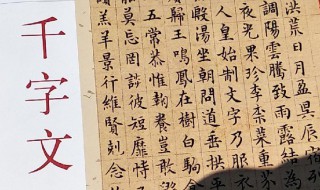 千字文
洪荒日月盈昃辰宿
調陽雲騰致雨露結為
夜光果珍李柰菜重芥
人皇始制文字乃服衣
殷湯坐朝問道垂拱平
歸王鳴鳳在樹白駒食
五常恭惟鞠養豈敢毀
莫忘罔談彼短靡恃
羔羊景行維賢剋念